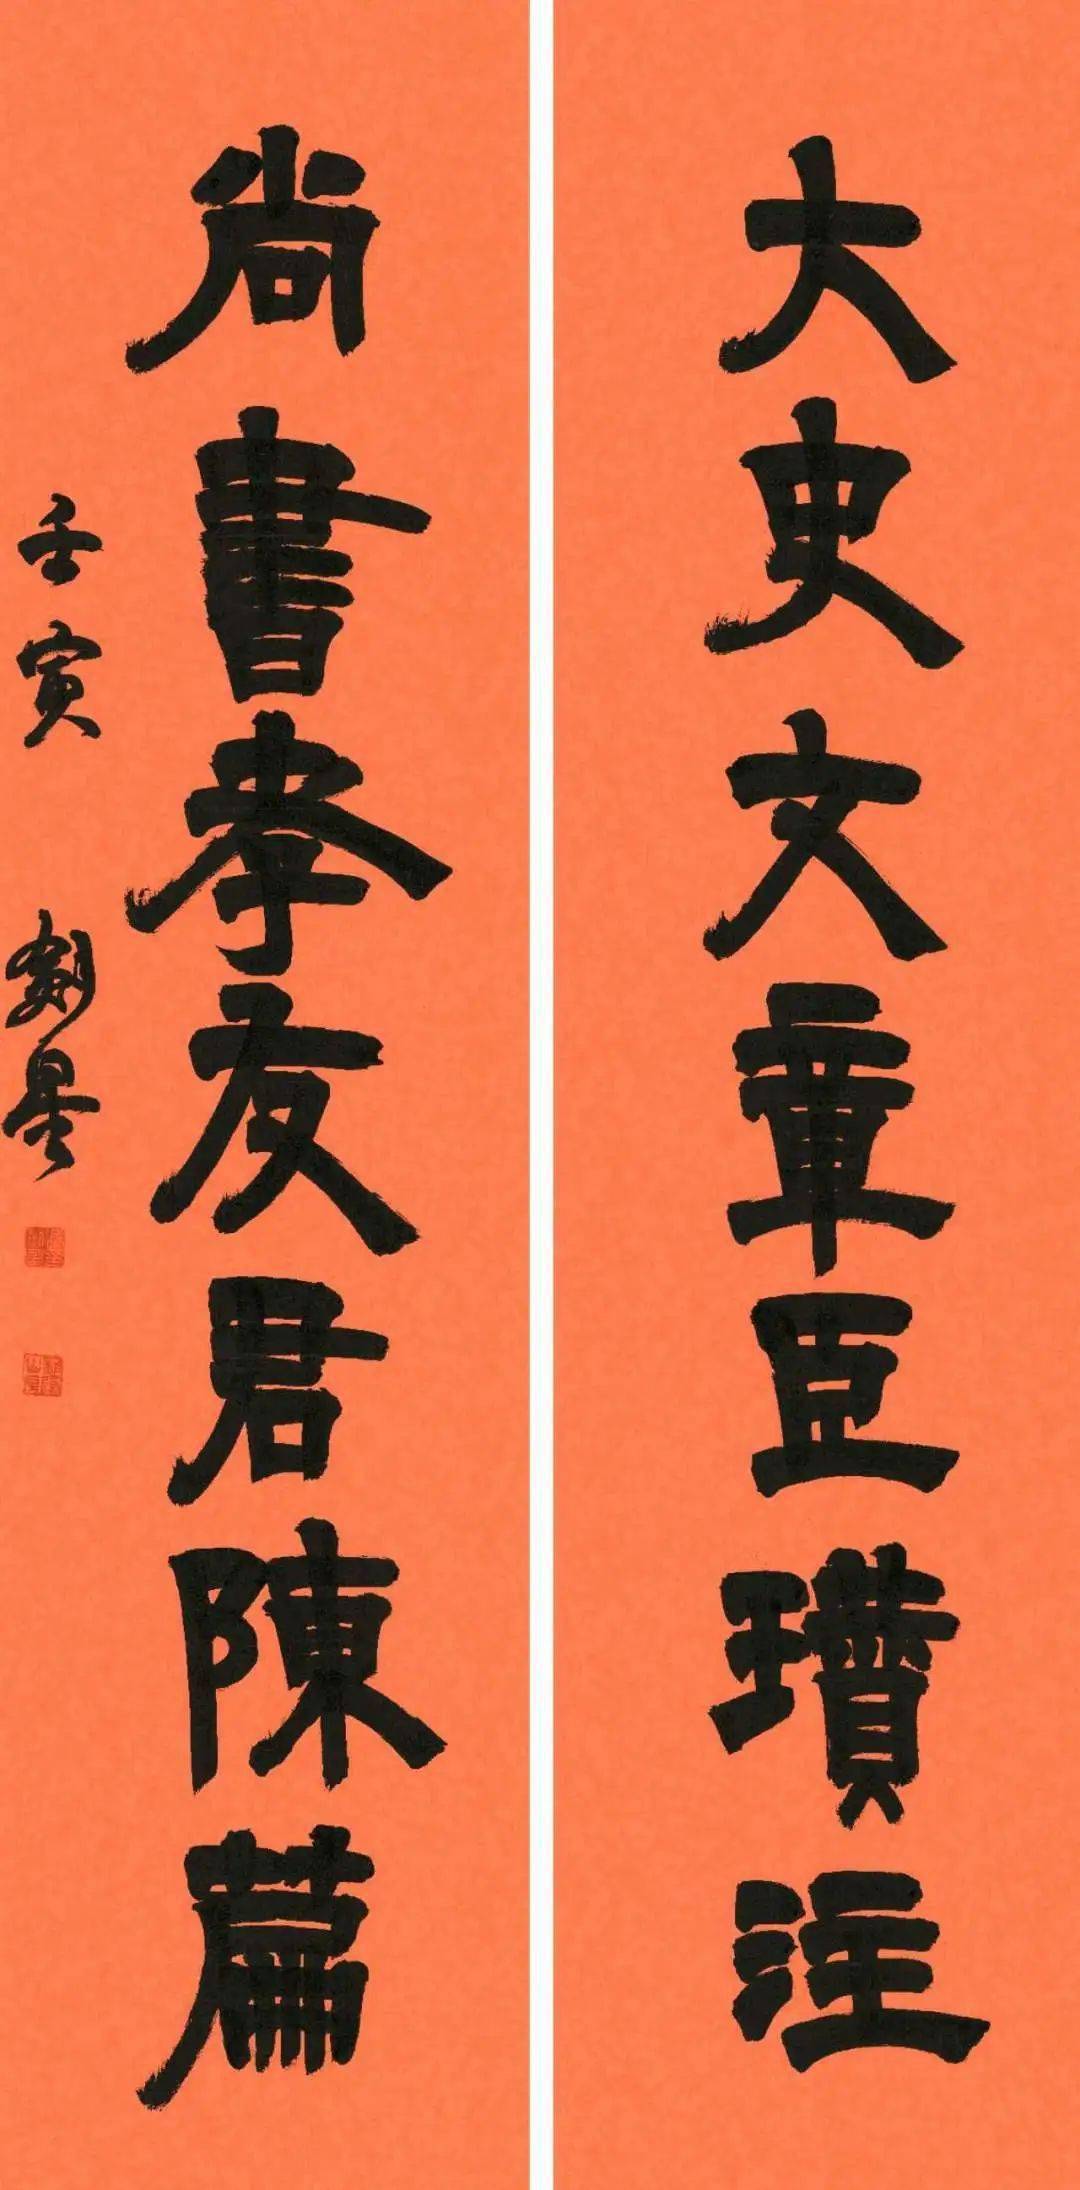 大史文章臣瓚注
尚書孝友君陳篇
壬寅 劉星